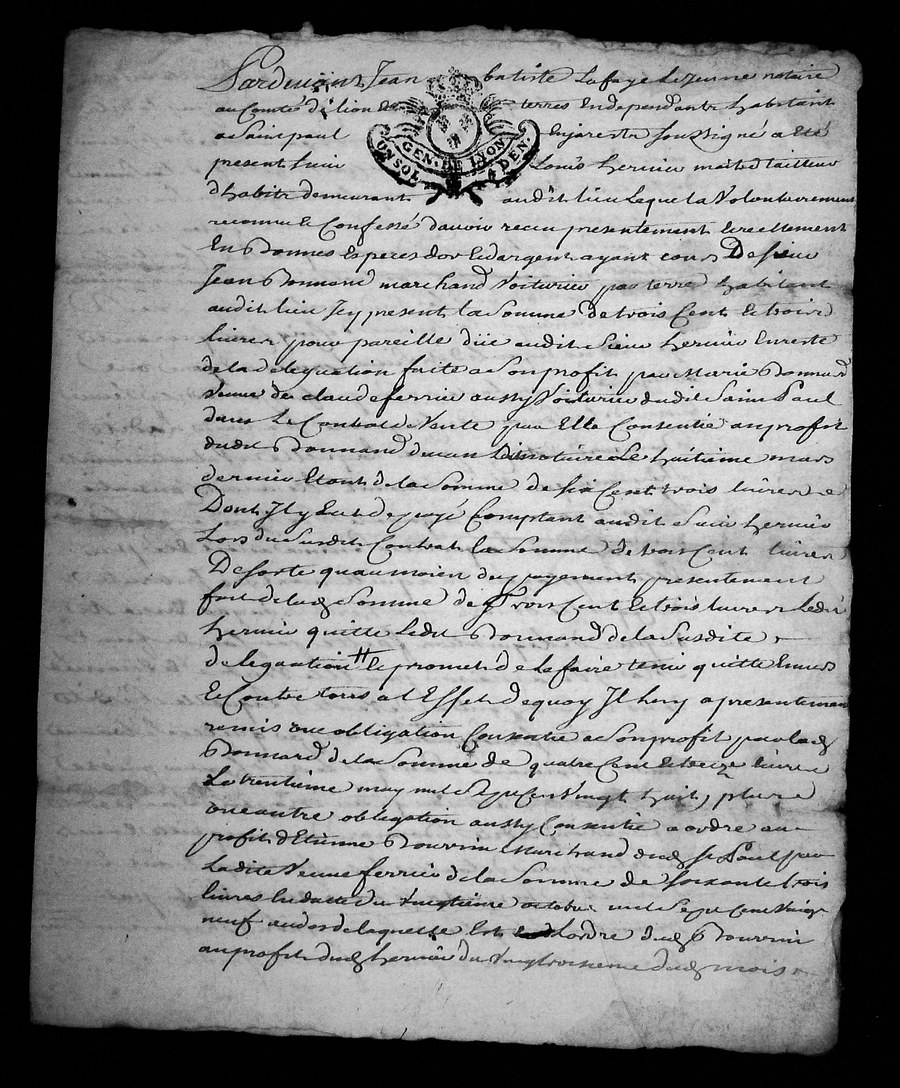 Pardevant Jean batiste Lafaye Lejeune notaire
au Comté de lion et terres En dependante habitant
a Saint paul Enjarest Soussigné a Eté
GEN. DE LYON
UN SOL 4 DEN.
present Sieur Louis hervier maitre tailleur
d'habits demeurant audit lieu Lequel a Volontairement
reconnu et Confessé d'avoir receu presentement et reellement
En Bonnes Especes d'or et d'argent ayant cours De Sieur
Jean Bonnand marchand Voiturier par terre habitant
audit lieu Icy present la Somme de trois Cent et trois
livres pour pareille düe audit Sieur hervier En reste
de la deleguation faite a Son profit par Marie Bonnard
Veuve de claude ferrier aussy Voiturier dudit Saint Paul
dans Le Contrat de Vente par Elle Consentie au profit
dudit Bonnand devant Ledit notaire Le huitieme mars
dernier Etant de la Somme de Six Cent trois livres
Dont Il y Eut de payé Comptant audit Sieur hervier
Lors du Susdit Contrat la Somme de trois Cent livres
De Sorte qu'au moien du payement presentement
fait de lad Somme de Trois Cent et trois livres Ledit
hervier quitte Ledit Bonnand de la Susdite
delegaation et promet de le faire tenir quitte Envers
Et Contre tous a l'Effet de quoy Il luy a presentement
remis une obligation Consentie a Son profit par lad
Bonnard de la Somme de quatre Cent et treize livres
Le trentieme may mil Sept Cent Vingt huit, plus
une autre obligation aussy Consentie a ordre au
profit d'Etienne Bouvrin Marchand dud St Paul par
La dite Veuve ferrier de la Somme de Soixante trois
livres En datte du Vingtieme octobre mil Sept Cent Vingt
neuf au dos de laquelle Est l'ordre dud Bouvrin
au profit dud hervier du Vingt troisieme dud mois